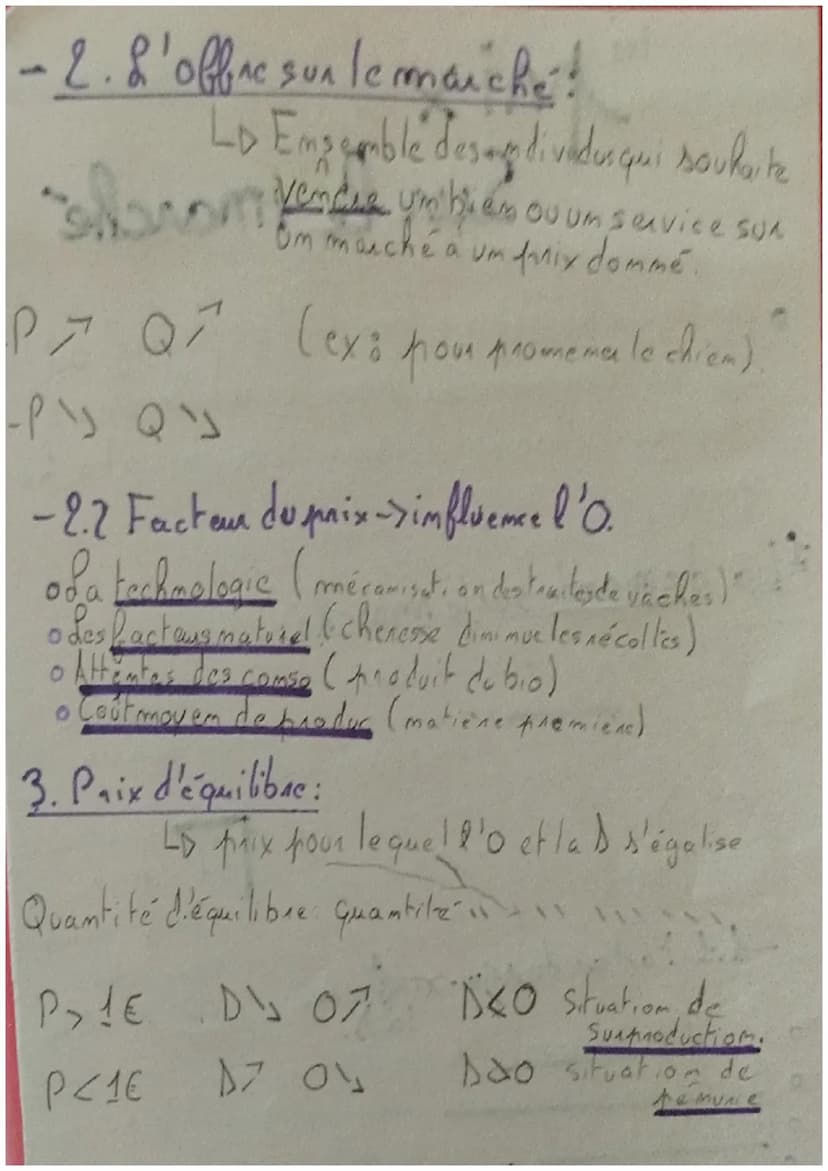 - 2. L'offre sur le marché!
↳ Ensemble des individus qui souhaite
vendre un bien ou un service sur
un marché à un prix donné.
P ↗ Q ↗ (ex: pour promener le chien)
-P ↘ Q ↘
- 2.2 Facteur du prix -> influence l'O.
o La technologie (mécanisation des traites de vaches)
o des facteurs naturel (cheresse diminue les récoltes)
o Attentes des conso (produit du bio)
o Coût moyen de produc (matière première)
3. Prix d'équilibre:
↳ prix pour lequel l'O et la D s'égalise
Quantité d'équilibre: quantité " " " " " " "
P > 1€ D ↘ O ↗ D<O situation de
surproduction.
P < 1€ D ↗ O ↘ D>O situation de
pénurie